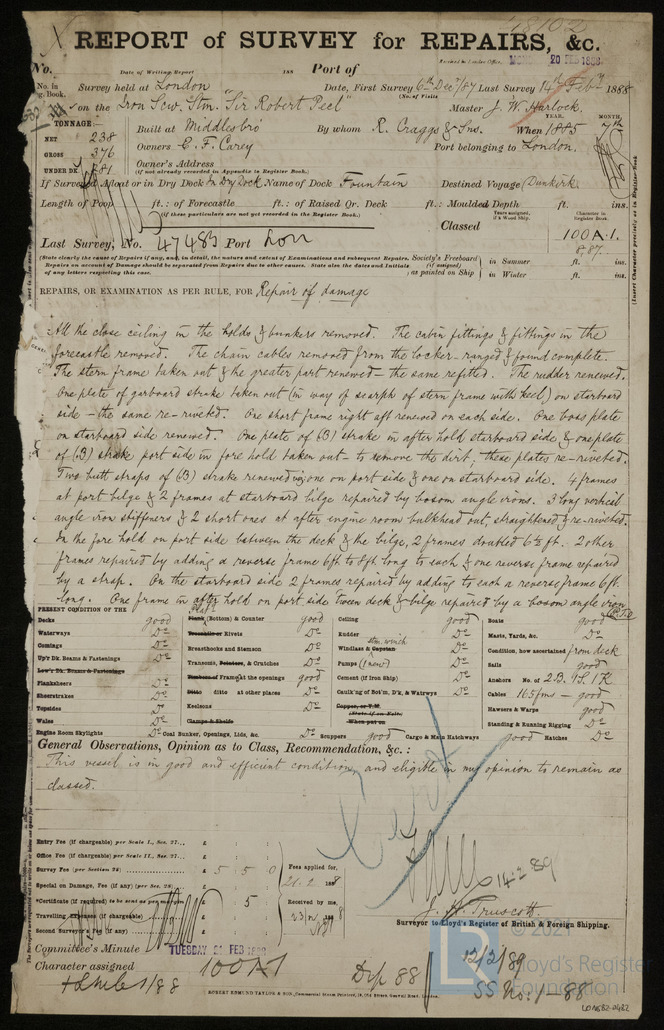 48102
REPORT of SURVEY for REPAIRS, &c.
Received at London Office, MON. 20 FEB 1888
No. Date of Writing Report 188 Port of
No. in Survey held at London Date, First Survey 6th Decr/87 Last Survey 14th Feby 1888
Reg. Book. (No. of Visits)
on the Iron Scw. Stm. "Sir Robert Peel" Master J. W. Harlock.
TONNAGE:— YEAR. MONTH.
NET 238 Built at Middlesbro' By whom R. Craggs & Sns. When 1885 7th
GROSS 376 Owners E. F. Carey Port belonging to London.
UNDER DK 381 Owner's Address
(if not already recorded in Appendix to Register Book.)
If Surveyed Afloat or in Dry Dock In Dry Dock Name of Dock Fountain Destined Voyage Dunkirk.
Length of Poop ft.: of Forecastle ft.: of Raised Qr. Deck ft.: Moulded Depth ft. ins.
(if these particulars are not yet recorded in the Register Book.)
Years assigned, if a Wood Ship. Character in Register Book.
Classed 100A.1.
8,87.
Last Survey, No. 47483 Port Lon
(State clearly the cause of Repairs if any, and in detail, the nature and extent of Examinations and subsequent Repairs.
Repairs on account of Damage should be separated from Repairs due to other causes. State also the dates and Initials
of any letters respecting this case.
Society's Freeboard (if assigned) as painted on Ship in Summer ft. ins.
in Winter ft. ins.
(Insert Character precisely as in Register Book
REPAIRS, OR EXAMINATION AS PER RULE, FOR Repair of damage
All the close ceiling in the holds & bunkers removed. The cabin fittings & fittings in the
forecastle removed. The chain cables removed from the locker - ranged & found complete.
The stern frame taken out & the greater part renewed — the same refitted. The rudder renewed.
One plate of garboard strake taken out (in way of scarph of stern frame with keel) on starboard
side — the same re-riveted. One short frame right aft renewed on each side. One boss plate
on starboard side renewed. One plate of (B) strake in after hold starboard side & one plate
of (B) strake port side in fore hold taken out — to remove the dirt; these plates re-riveted.
Two butt straps of (B) strake renewed viz; one on port side & one on starboard side). 4 frames
at port bilge & 2 frames at starboard bilge repaired by bosom angle irons. 3 long vertical
angle iron stiffeners & 2 short ones at after engine room bulkhead out, straightened & re-riveted.
In the fore hold on port side between the deck & the bilge, 2 frames doubled 6½ ft. 2 other
frames repaired by adding a reverse frame 6ft to 8ft long to each & one reverse frame repaired
by a strap. On the starboard side 2 frames repaired by adding to each a reverse frame 6ft.
long. One frame in after hold on port side 'tween deck & bilge repaired by a bosom angle iron
PRESENT CONDITION OF THE
Decks good
Waterways Do
Comings Do
Up'r Dk. Beams & Fastenings Do
Low'r Dk. Beams & Fastenings
Planksheers Do
Sheerstrakes Do
Topsides Do
Wales Do
Engine Room Skylights Do
Plates
Plank (Bottom) & Counter good
Treenails or Rivets Do
Breasthooks and Stemson Do
Transoms, Pointers, & Crutches Do
Timbers of Frame at the openings good
Ditto ditto at other places Do
Keelsons Do
Clamps & Shelfs
Coal Bunker, Openings, Lids, &c. Do
Ceiling good
Rudder Do
stm. winch
Windlass & Capstan Do
Pumps Do
Cement (if Iron Ship) Do
Caulk'ng of Bot'm, D'k, & Watrwys Do
Copper, or Y.M.
(State if on Felt.
When put on
Scuppers good Cargo & Main Hatchways good Hatches Do
Boats good
Masts, Yards, &c. Do
Condition, how ascertained from deck
Sails good
Anchors No. of 2.B. 1S. 1K
Cables 165 fms — good
Hawsers & Warps good
Standing & Running Rigging Do
General Observations, Opinion as to Class, Recommendation, &c.:
This vessel is in good and efficient condition, and eligible in my opinion to remain as
classed.
Entry Fee (if chargeable) per Scale I., Sec. 27... £ : :
Office Fee (if chargeable) per Scale II., Sec. 27... £ : :
Survey Fee (per Section 28) £ 5 : 5 : 0
Special on Damage, Fee (if any) (per Sec. 28) £ : :
*Certificate (if required) to be sent as per margin £ : 5 :
Travelling Expenses (if chargeable) £ : :
Second Surveyor's Fee (if any) £ : :
Fees applied for,
21.2.1888
Received by me,
14.2.89
J. H. Truscott.
Surveyor to Lloyd's Register of British & Foreign Shipping.
Committee's Minute TUESDAY 21 FEB 1888
Character assigned 100A1
12/2/89
SS No: 1-88
ROBERT EDMUND TAYLOR & SON, Commercial Steam Printers, 19, Old Street, Goswell Road, London.
© 2021
Lloyd's Register
Foundation
LON682-0482